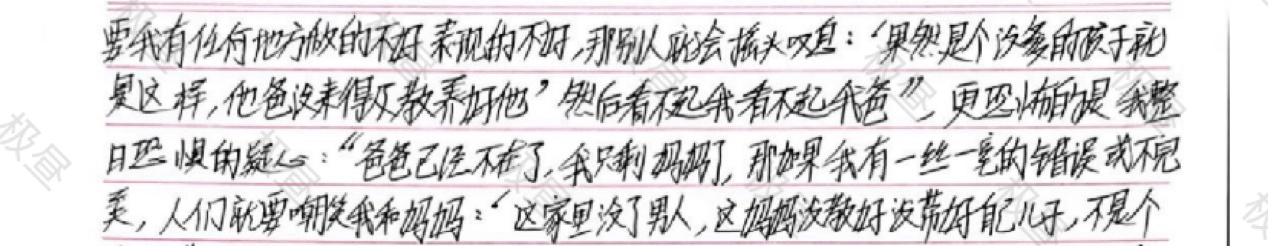 要我有任何地方做的不好表现的不好,那别人就会摇头叹息:‘果然是个没爹的孩子就
是这样,他爸没来得及教养好他’然后看不起我看不起我爸”,更恐怖的是我整
日恐惧的疑心:“爸爸已经不在了,我只剩妈妈了,那如果我有一丝一毫的错误或不完
美,人们就要嘲笑我和妈妈:‘这家里没了男人,这妈妈没教好没带好自己儿子,不是个
极昼